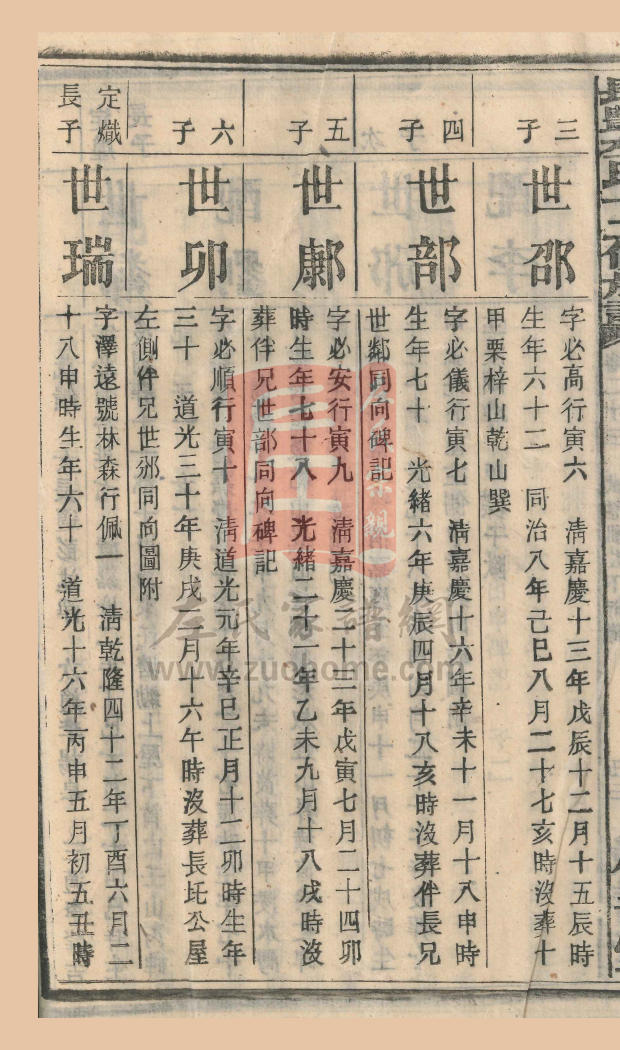 三子
世邵
字必高行寅六　清嘉慶十三年戊辰十二月十五辰時
生年六十二　同治八年己巳八月二十七亥時沒葬十
甲栗梓山乾山巽
四子
世部
字必儀行寅七　清嘉慶十六年辛未十一月十八申時
生年七十　光緒六年庚辰四月十八亥時沒葬伴長兄
世鄰同向碑記
五子
世鄺
字必安行寅九　清嘉慶二十二年戊寅七月二十四卯
時生年七十八　光緒二十一年乙未九月十八戌時沒
葬伴兄世部同向碑記
六子
世卯
字必順行寅十　清道光元年辛巳正月十二卯時生年
三十　道光三十年庚戌二月十六午時沒葬長圫公屋
左側伴兄世邠同向圖附
定熾長子
世瑞
字澤遠號林森行佩一　清乾隆四十二年丁酉六月二
十八申時生年六十　道光十六年丙申五月初五丑時
左氏家譜網
www.zuohome.com